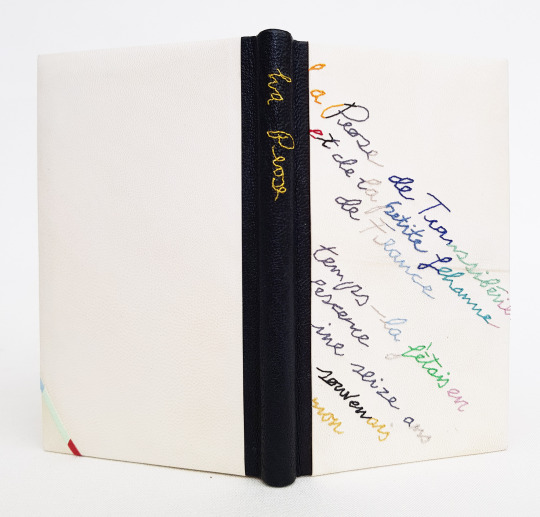 La Prose
La Prose de Transsibérie
et de la petite Jehanne
de France
temps-la j'étais en
lescence
ine seize ans
souvenais
mon